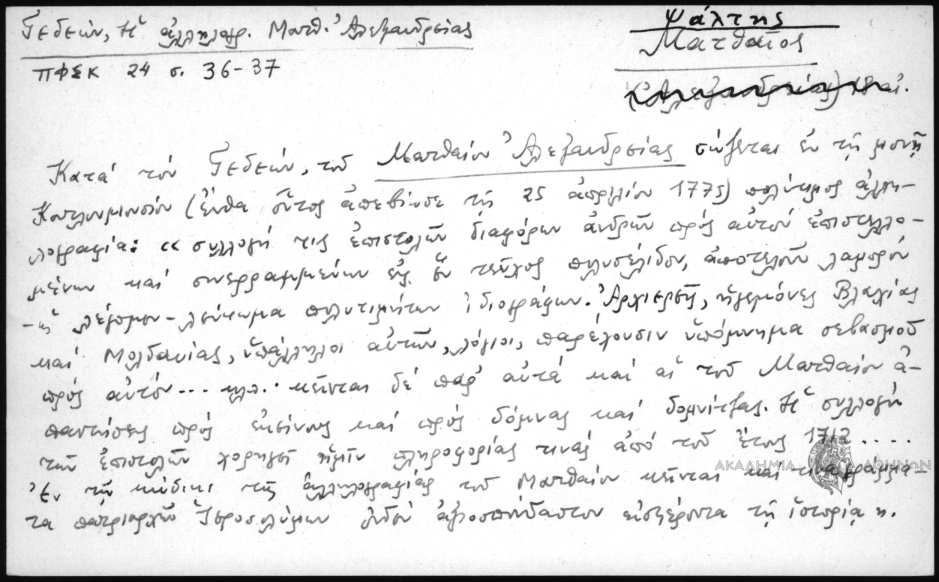 Γεδεών, Ἡ ἀλληλογρ. Ματθ. Ἀλεξανδρείας
ΠΦΣΚ 24 σ. 36-37
Ψάλτης
Ματθαῖος
Κατά τόν Γεδεών, τοῦ Ματθαίου Ἀλεξανδρείας σώζεται ἐν τῇ μονῇ
Κουτλουμουσίου (ἔνθα οὗτος ἀπεβίωσε τῇ 25 ἀπριλίου 1775) πολύτιμος ἀλλη-
λογραφία: «συλλογή τις ἐπιστολῶν διαφόρων ἀνδρῶν πρός αὐτόν ἐπιστελλο-
μένων καί συνερραμμένων εἰς ἕν τεῦχος πολυσέλιδον, ἀποτελοῦν λαμπρόν
-ὡς λέγομεν- λεύκωμα πολυτιμήτων ἰδιογράφων. Ἀρχιερεῖς, ἡγεμόνες Βλαχίας
καί Μολδαυίας, ὑπάλληλοι αὐτῶν, λόγιοι, παρέχουσιν ὑπόμνημα σεβασμοῦ
πρός αὐτόν... κλπ.. κεῖνται δέ παρ' αὐτά καί αἱ τοῦ Ματθαίου ἀ-
παντήσεις πρός ἐκείνους καί πρός δόμνας καί δομνίτζας. Ἡ συλλογή
τῶν ἐπιστολῶν χορηγεῖ ἡμῖν πληροφορίας τινάς ἀπό τοῦ ἔτους 1712.....
Ἐν τῷ κώδικι τῆς ἀλληλογραφίας τοῦ Ματθαίου κεῖνται καί τινα γράμμα-
τα πατριαρχῶν Ἱεροσολύμων οὐδέν ἀξιοσπούδαστον εἰσφέροντα τῇ ἱστορίᾳ
ΑΚΑΔΗΜΙΑ ΑΘΗΝΩΝ